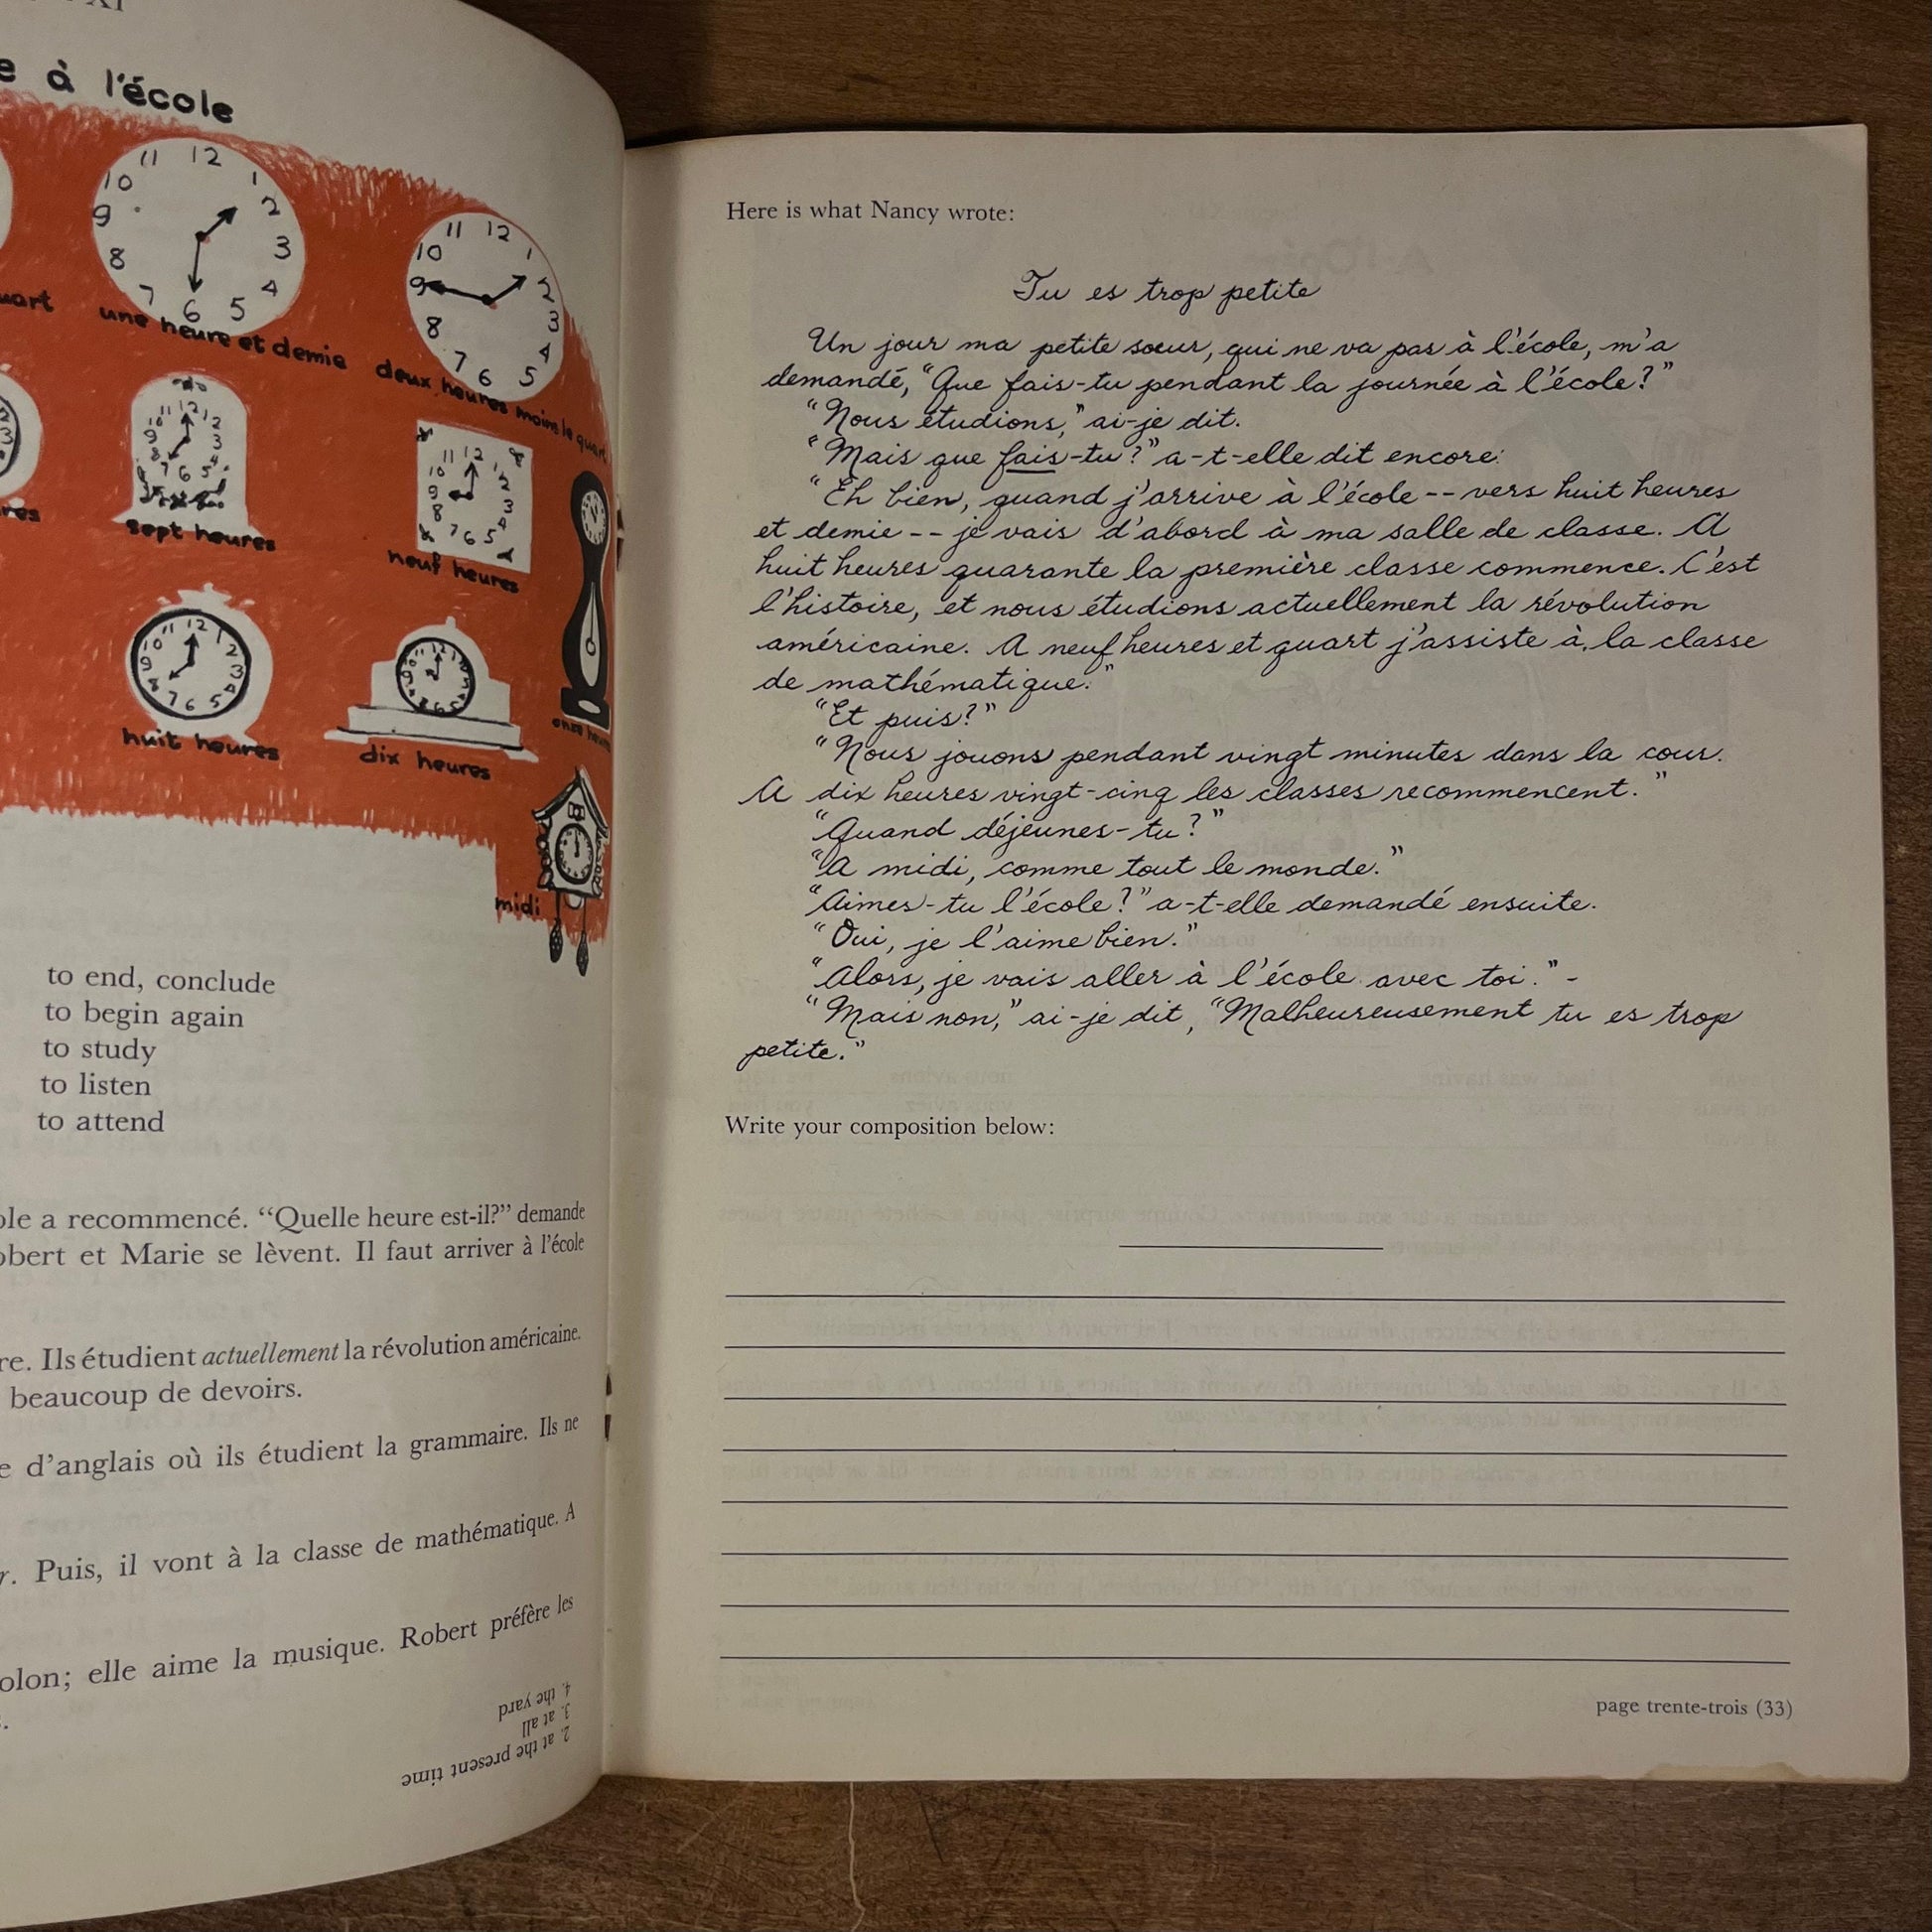 XI
à l'école
11 12 1 2 3 4 5 6 7 8 9 10
une heure et demie
11 12 1 2 3 4 5 6 7 8 9 10
deux heures moins le quart
sept heures
neuf heures
huit heures
dix heures
onze heures
midi
to end, conclude
to begin again
to study
to listen
to attend
a recommencé. “Quelle heure est-il?” demande
et Marie se lèvent. Il faut arriver à l'école
Ils étudient actuellement la révolution américaine.
beaucoup de devoirs.
d'anglais où ils étudient la grammaire. Ils ne
Puis, il vont à la classe de mathématique. A
elle aime la musique. Robert préfère les
2. at the present time
3. at all
4. the yard
Here is what Nancy wrote:
Tu es trop petite
Un jour ma petite soeur, qui ne va pas à l'école, m'a
demandé, “Que fais-tu pendant la journée à l'école?”
“Nous étudions,” ai-je dit.
“Mais que fais-tu?” a-t-elle dit encore.
“Eh bien, quand j'arrive à l'école -- vers huit heures
et demie -- je vais d'abord à ma salle de classe. A
huit heures quarante la première classe commence. C'est
l'histoire, et nous étudions actuellement la révolution
américaine. A neuf heures et quart j'assiste à la classe
de mathématique.”
“Et puis?”
“Nous jouons pendant vingt minutes dans la cour.
A dix heures vingt-cinq les classes recommencent.”
“Quand déjeunes-tu?”
“A midi, comme tout le monde.”
“Aimes-tu l'école?” a-t-elle demandé ensuite.
“Oui, je l'aime bien.”
“Alors, je vais aller à l'école avec toi.” -
“Mais non,” ai-je dit, “Malheureusement tu es trop
petite.”
Write your composition below:
page trente-trois (33)